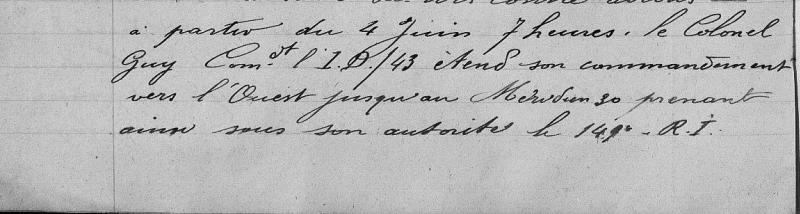 à partir du 4 Juin 7 heures. le Colonel
Guy Com.dt l'I.D./43 étend son commandement
vers l'Ouest jusqu'au Méridien 30 prenant
ainsi sous son autorité le 149e - R.I.